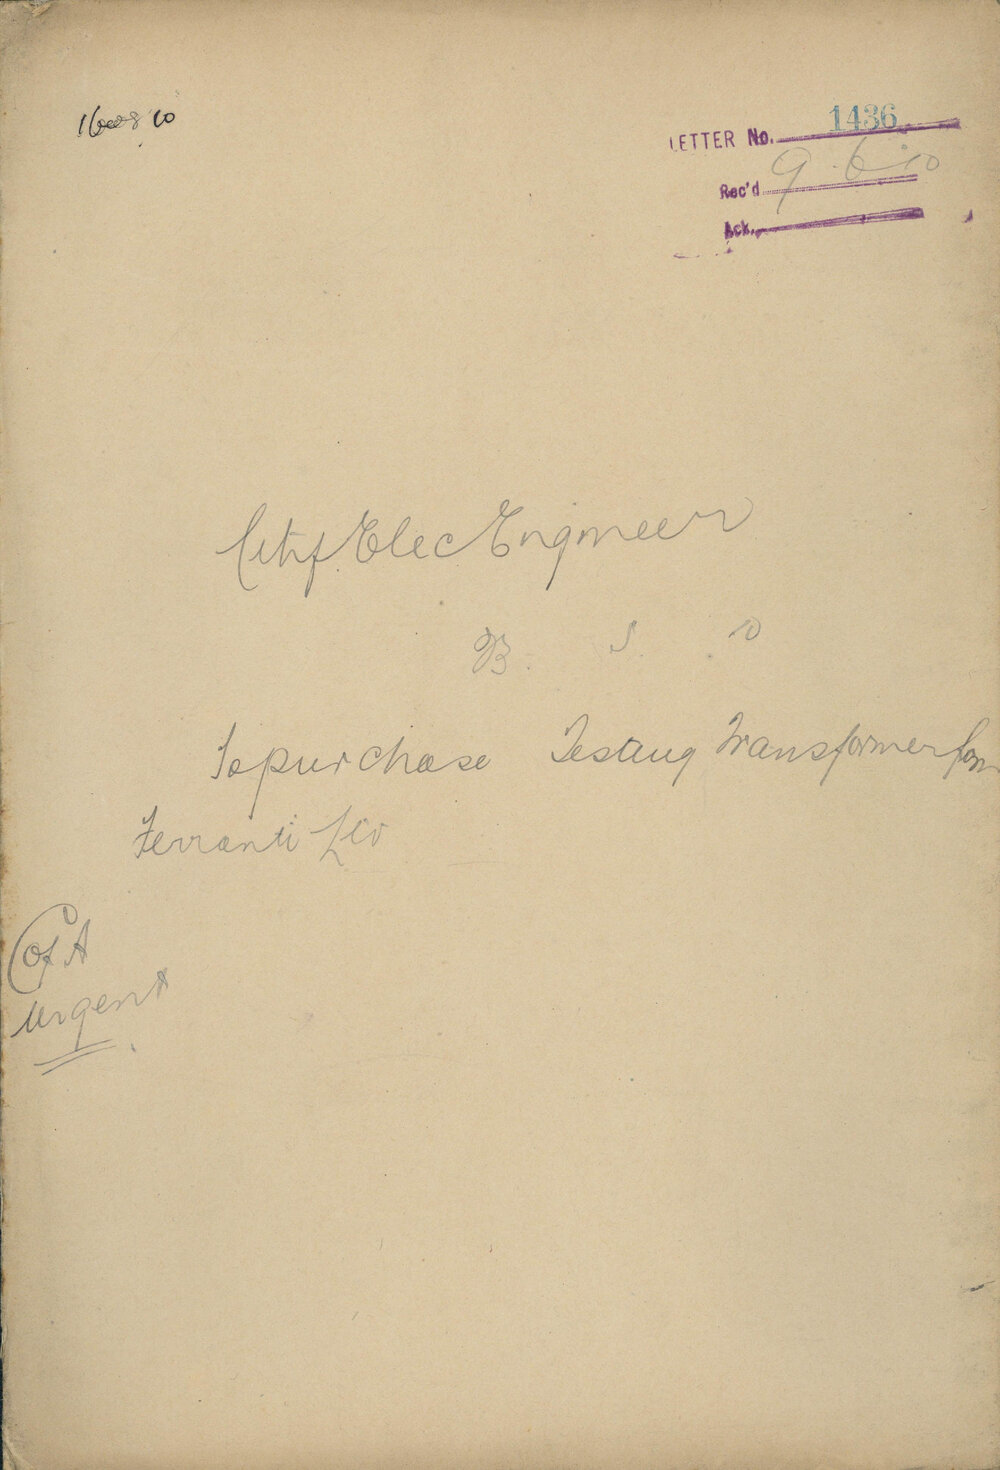 LETTER No. 1436
Rec'd 9.6.10
Ack.
City Elec Engineer
B. S. O
To purchase Testing Transformer from
Ferranti Ltd
C of A
Urgent